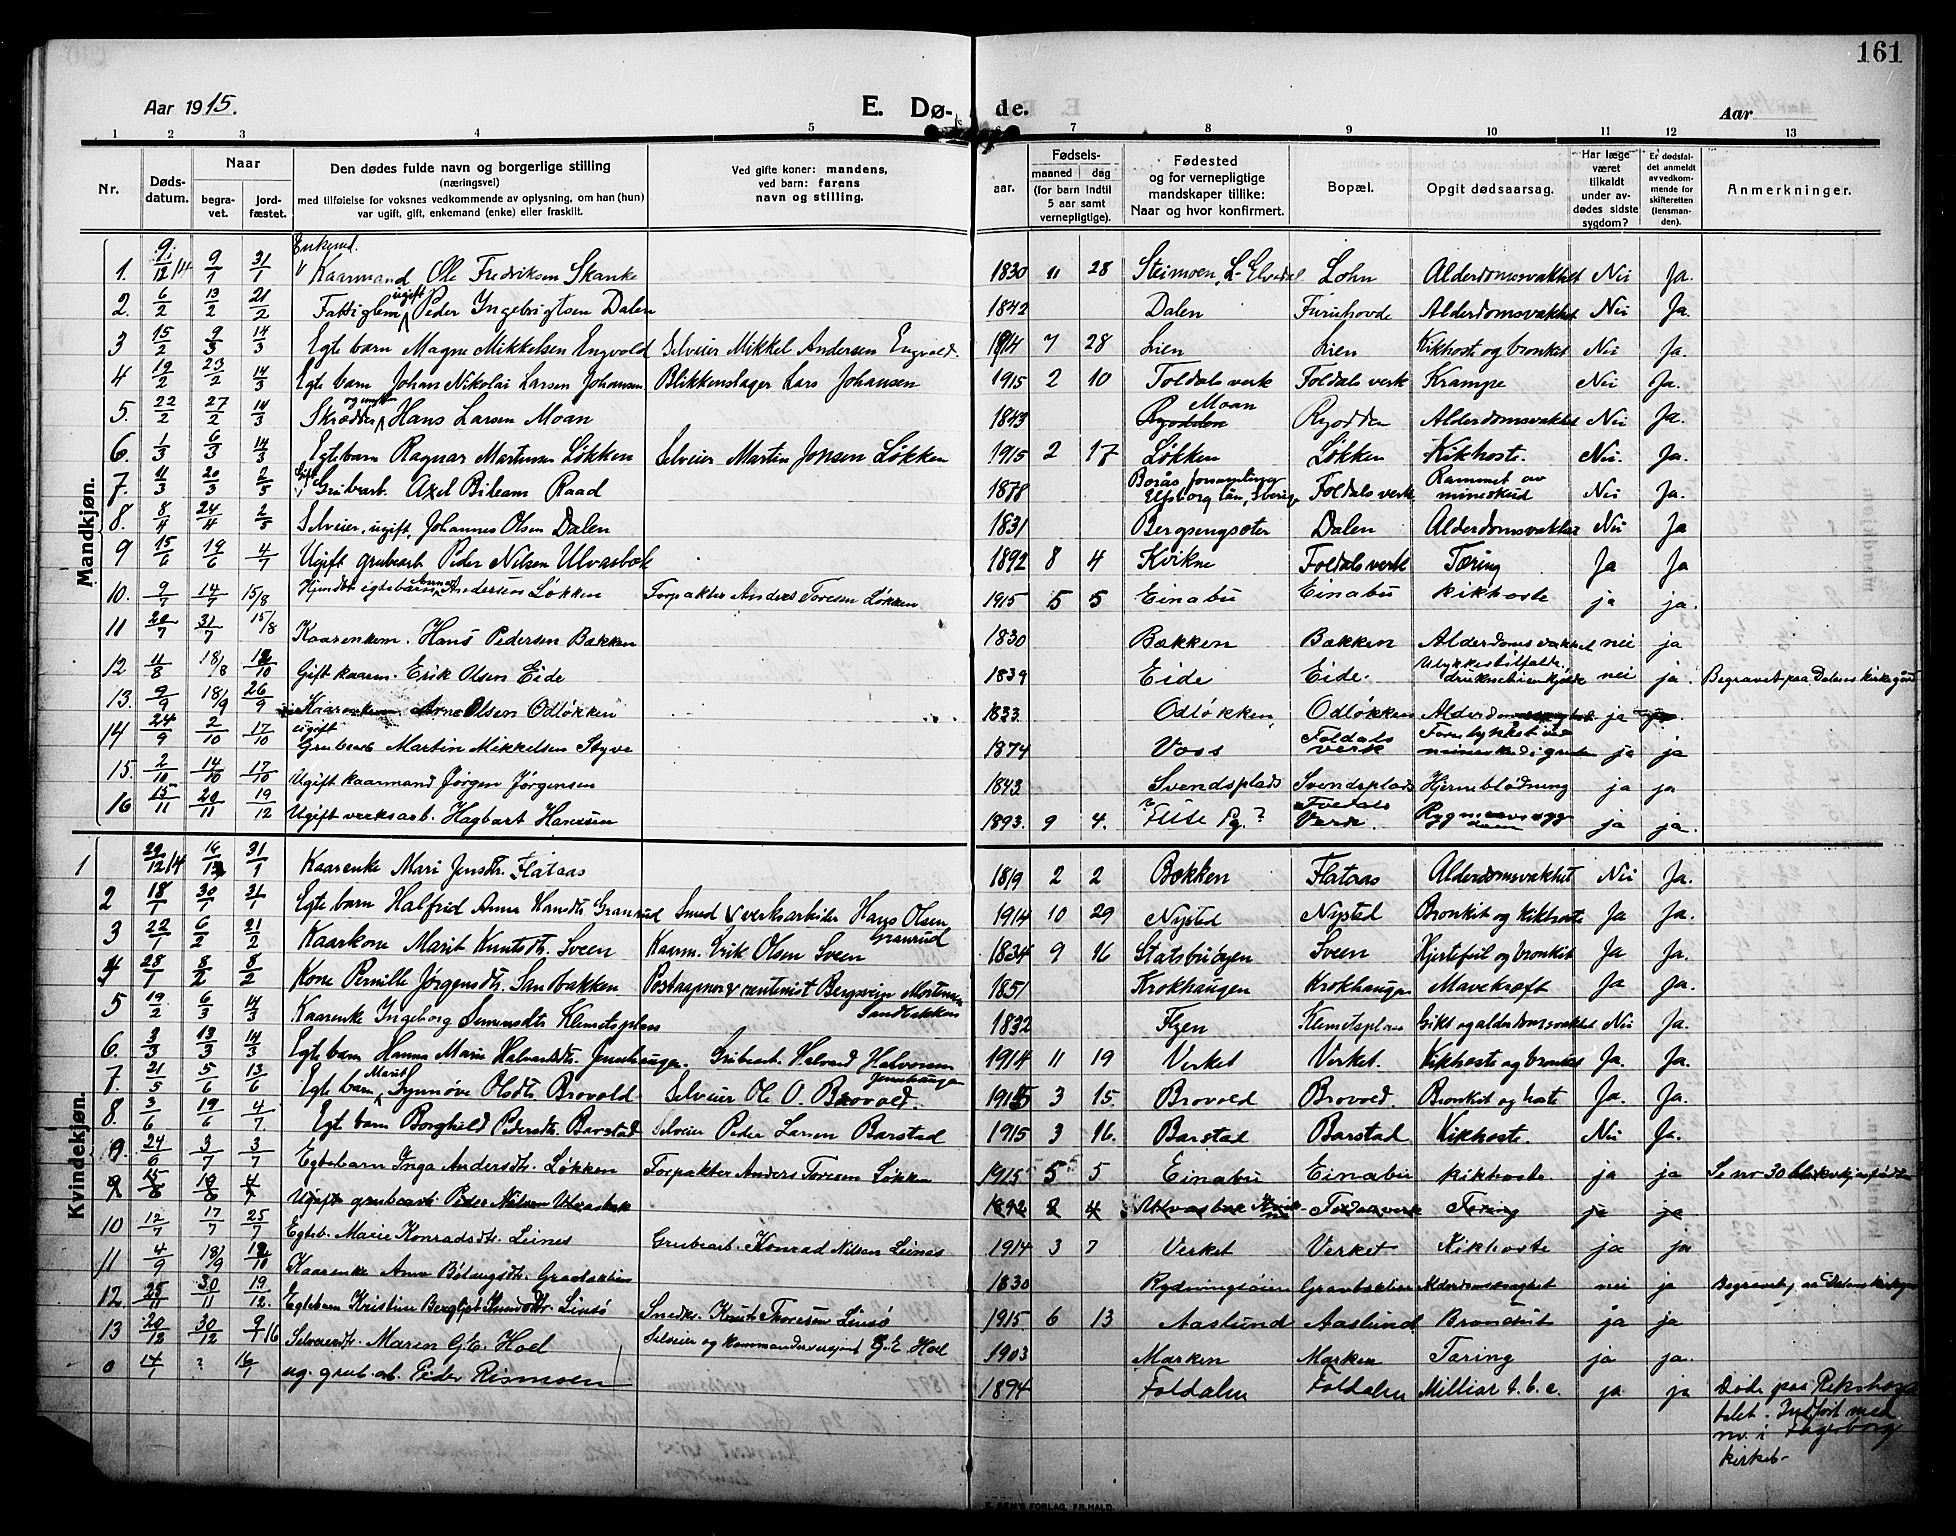 161
Aar 1915.
E. Dø-
de.
Aar
1 2 3 4 5 7 8 9 10 11 12 13
Nr.
Døds-
datum.
Naar
begra-
vet.
jord-
fæstet.
Den dødes fulde navn og borgerlige stilling
(næringsvei)
med tilføielse for voksnes vedkommende av oplysning, om han (hun)
var ugift, gift, enkemand (enke) eller fraskilt.
Ved gifte koner: mandens,
ved barn: farens
navn og stilling.
aar.
Fødsels-
maaned dag
(for barn indtil
5 aar samt
vernepligtige).
Fødested
og for vernepligtige
mandskaper tillike:
Naar og hvor konfirmert.
Bopæl.
Opgit dødsaarsag.
Har læge
været
tilkaldt
under av-
dødes sidste
sygdom?
Er dødsfal-
det anmeldt
av vedkom-
mende for
skifteretten
(lensman-
den).
Anmerkninger.
Mandkjøn.
Enkemd.
1. 9/12 14 9/1 31/1 Kaarmand Ole Fredriksen Skanke 1830 11 28 Steimoen, L. Elvedal Lohn Alderdomsvakhet Nei Ja.
2. 6/2 13/2 21/2 Fattiglem ugift Peder Ingebrigtsen Dalen 1842 Dalen Furuhovde Alderdomsvakhet Nei Ja.
3 15/2 9/3 14/3 Egte barn Magne Mikkelsen Engvold Selveier Mikkel Andersen Engvold. 1914 7 28 Lien Lien Kikhoste og bronkit Nei Ja.
4 19/2 23/2 14/3 Egte barn Johan Nikolai Larsen Johansen Blikkenslager Lars Johansen 1915 2 10 Foldals verk Foldals verk Krampe Nei Ja.
5. 22/2 27/2 14/3 Skrædder Hans Larsen Moan 1843 Moan Rydden Alderdomsvakhet Nei Ja.
6. 1/3 6/3 14/3 Egte barn Ragnar Martinsen Løkken Selveier Martin Jonsen Løkken 1915 2 17 Løkken Løkken Kikhoste. Nei Ja.
7. 11/3 20/3 2/5 Grubearb. Axel Bileam Raad 1878 Borås forsamling Elfsborg län, Sverige Foldals verk Rammet av mineskud Nei Ja.
8. 8/4 24/4 2/5 Selveier, ugift, Johannes Olsen Dalen 1831 Bergsengseter Dalen Alderdomsvakhet Nei Ja
9 15/6 19/6 4/7 Ugift grubearb Peder Nilsen Ulvasbak 1892 8 4 Kvikne Foldals verk Tæring Ja Ja
10. 9/7 14/7 15/8 Hjemdøbt egtebarn Andersen Løkken Forpakter Anders Toresen Løkken 1915 5 5 Einabu Einabu kikhoste ja ja.
11 20/7 31/7 15/8 Kaarenkem. Hans Pedersen Bakken 1830 Bakken Bakken Alderdomsvakhet nei ja
12 11/8 18/8 12/10 Gift kaarm. Erik Olsen Eide 1839 Eide Eide. Ulykkestilfælde, nei ja. Begravet paa Dalens kirkegård
13. 9/9 18/9 26/9 Kaarenkem Arne Olsen Odløkken 1833. Odløkken Odløkken ja
14 24/9 2/10 17/10 ugift Grubearb Martin Mikkelsen Styve 1874 Voss Foldals verk Forulykket ved mineskud i gruben ja ja
15. 2/10 14/10 17/10 Ugift kaarmand Jørgen Jørgensen 1843. Svendsplads Svendsplads Hjerneblødning ja ja
16 15/11 20/11 19/12 Ugift verksarb. Hagbart Hansen 1893. 9 4. Foldals Verk. ja ja.
Kvindekjøn.
1 29/12 14 31/1 Kaarenke Mari Jensdtr. Flataas 1819 2 2 Bakken Flataas Alderdomsvakhet Nei Ja.
2 18/1 30/1 31/1 Egte barn Halfrid Anna Hansdtr Granrud Smed & verksarbeider Hans Olsen Granrud 1914 10 29 Nystad Nystad Bronkit og kikhoste Ja Ja
3 22/1 6/2 21/2 Kaarkone Marit Knutsdtr. Sveen Kaarm. Erik Olsen Sveen 1834 9 16 Statsbuøyen Sveen Hjertefeil og bronkit Ja Ja.
4 28/1 8/2 8/2 Kone Pernille Jørgensdtr. Sandbakken Postaapner & rentenist Bergsvein Mortensen Sandbakken 1851 Krokhaugen Krokhaugen Mavekræft Ja Ja.
5 19/2 6/3 14/3 Kaarenke Ingeborg Simensdtr Klemetsplass 1832 Flyen Klemetsplass Gikt og alderdomsvakhet Nei Ja.
6. 3/3 13/3 14/3 Egte barn Hanna Marie Halvardsdtr. Jenshaugen Grubearb. Halvard Halvorsen Jenshaugen 1914 11 19 Verket Verket. Kikhoste og bronkit Ja. Ja.
7. 21/5 5/6 13/6 Egte barn Marit Synnøve Olsdtr Brovold Selveier Ole O. Brovold. 1915 3 15. Brovold Brovold. Bronkit og hoste Ja. Ja.
8. 3/6 19/6 4/7 Egt. barn Borghild Pedersdtr. Barstad Selveier Peder Larsen Barstad 1915 3 16. Barstad Barstad Kikhoste. Nei Ja.
9. 24/6 3/7 3/7 Egtebarn Inga Andersdtr. Løkken Forpakter Anders Toresen Løkken 1915 5 5 Einabu Einabu kikhoste ja ja Se no 30
9 15/6 19/6 4/7 Ugift grubearb. Peder Nilsen Ulvasbak 1892 8 4 Ulvasbak Kvikne Foldals verk Tæring ja ja
10 12/7 17/7 25/7 Egteb. Marie Konradsdtr. Leines Grubearb. Konrad Nilsen Leines 1914 3 7 Verket Verket Kikhoste ja ja
11 4/9 18/9 12/10 Kaarenke Anne 1830 Alderdomssvaghet nei ja Begravet paa Dalens kirkegård
12 25/11 30/11 19/12. Egtebarn Kristine Bergljot Knudsdtr. Linsø Smedm. Knut Thoresen Linsø 1915 6 13 Aaslund Aaslund Bronchit ja ja
13 20/12 30/12 9/1 16 Selveierdtr. Maren G. E. Hoel Selveier og G. E. Hoel 1903 Marken Marken Tæring ja ja.
0 14/1 ? 16/1 ug. grub.ab. Peder Rismoen 1894 Foldalen Foldalen Milliær t. b. c. ja ja Døde paa Rikshospitalet. Indført med nr. i Fagerborg kirkeb.
E. SEM'S FORLAG, FR.HALD.